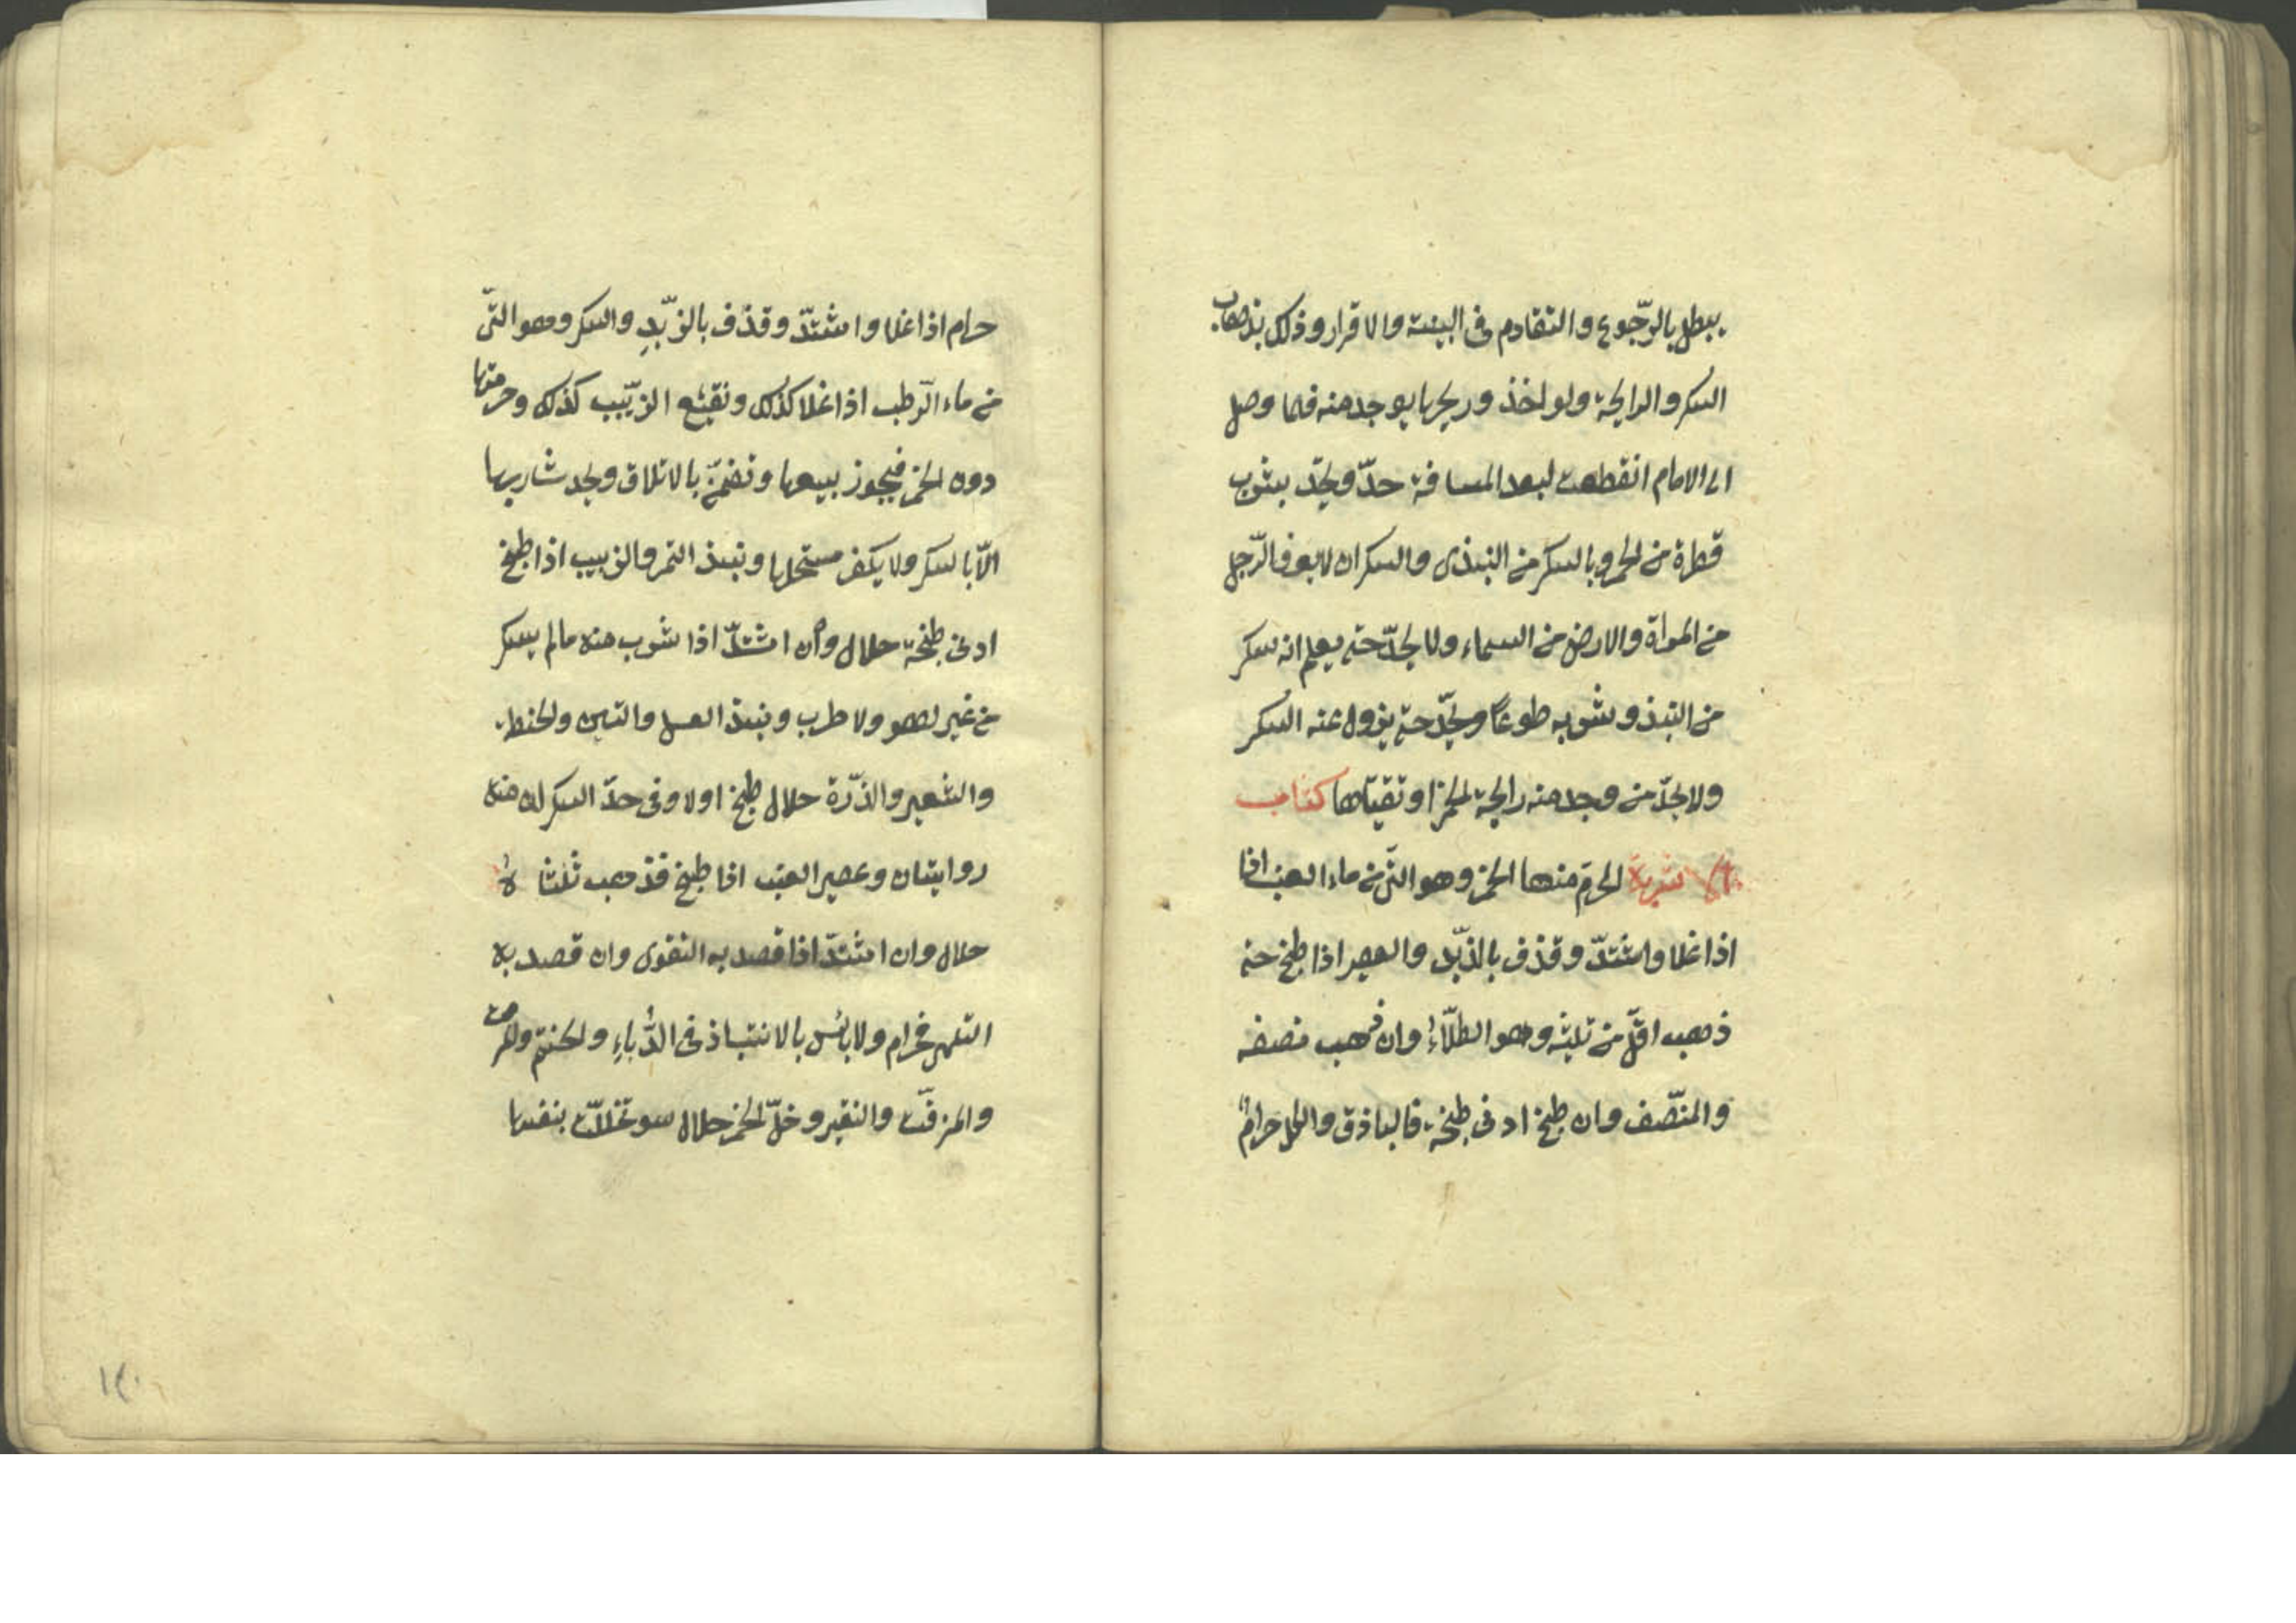 يبطل بالرّجوع والتقادم فى البينة والاقرار وذلك بذهاب
السكر والرايحة ولو اخذ وريحها يوجد منه فلما وصل
الى الامام انقطعت لبعد المسافة حدّ ويحدّ بشرب
قطرة من الخمر وبالسكر من النبيذ والسكران لا يعرف الرّجل
من المراة والارض من السماء ولا يحدّ حتى يعلم انه سكر
من النبيذ وشربه طوعًا ويحدّ حتى يزول عنه السكر
ولا يحدّ من وجد منه رايحة الخمر او تقيّاها كتاب
الاشربة الحرّم منها الخمر وهو النّى من ماء العنب اذا
اذا غلا واشتدّ وقذف بالزّبد والعصير اذا طبخ حتى
ذهب اقلّ من ثلثيه وهو الطّلاءُ وان ذهب نصفه
والمنصّف وان طبخ ادنى طبخة فالباذق والكل حرامٌ
حرام اذا غلا واشتدّ وقذف بالزّبدِ والسكر وهو النّى
من ماء الرّطب اذا غلا كذلك ونقيع الزّبيب كذلك وحرمتها
دون الخمر فيجوز بيعها وتضمّن بالاتلاف ولا يحد شاربها
الاّ بالسكر ولا يكفر مستحلها ونبيذ التمر والزبيب اذا طبخ
ادنى طبخة حلال وان اشتدّ اذا شرب منه ما لم يسكر
من غير لهو ولا طرب ونبيذ العسل والتين والحنطة
والشعير والذّرة حلال طبخ اولا وفى حدّ السكران منه
روايتان وعصير العنب اذا طبخ فذهب ثلثاهُ
حلال وان اشتدّ اذا قصد به التقوى وان قصد به
التلهى فحرام ولا باس بالانتباذ فى الدُّباءِ والحنتم
والمزفّت والنقير وخلّ الخمر حلال سو تخللت بنفسها
١٢٠